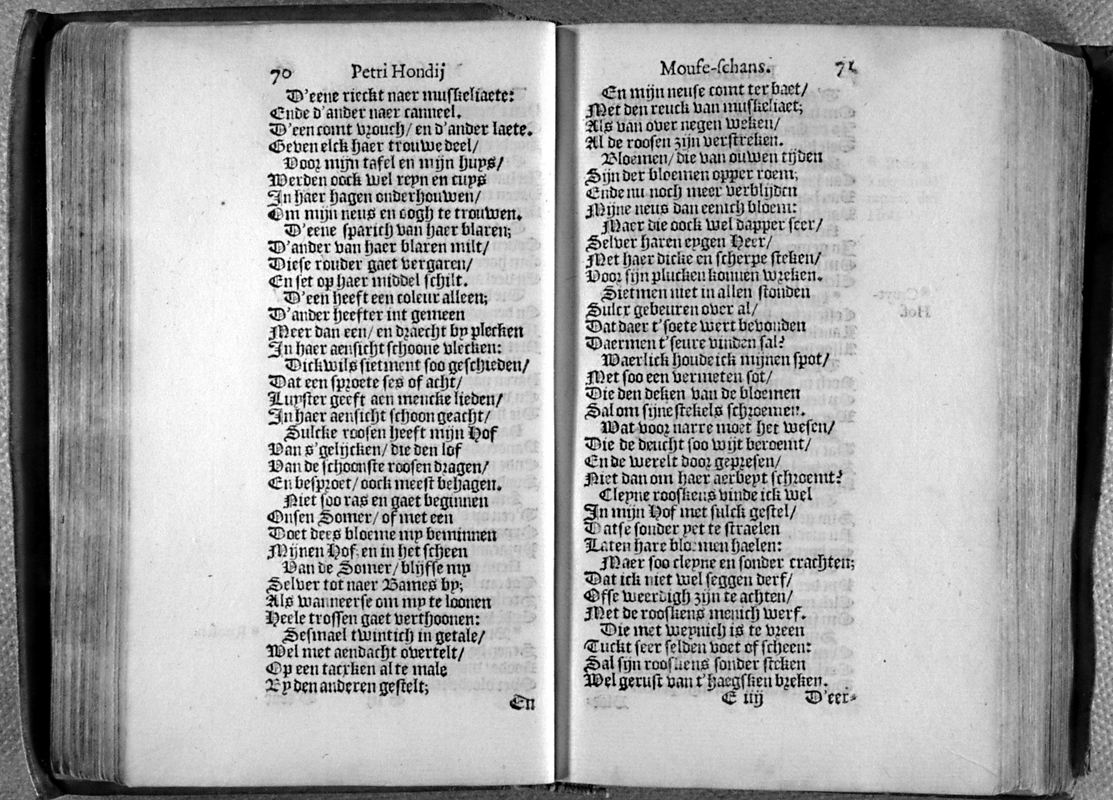 70 Petri Hondij
D'eene rieckt naer muskeliaete:
Ende d'ander naer canneel.
D'een comt vrouch/ en d'ander laete.
Geven elck haer trouwe deel/
Voor mijn tafel en mijn huys/
Werden oock wel reyn en cuys
In haer hagen onderhouwen/
Om mijn neus en oogh te trouwen.
D'eene sparich van haer blaren;
D'ander van haer blaren milt/
Diese rouder gaet vergaren/
En set op haer middel schilt.
D'een heeft een coleur alleen;
D'ander heefter int gemeen
Meer dan een/ en draecht by plecken
In haer aensicht schoone vlecken:
Dickwils sietment soo geschieden/
Dat een sproete ses of acht/
Luyster geeft aen mencke lieden/
In haer aensicht schoon geacht/
Sulcke roosen heeft mijn Hof
Van s'gelijcken/ die den lof
Van de schoonste roosen dragen/
En besproet/ oock meest behagen.
Niet soo ras en gaet beginnen
Onsen Somer/ of met een
Doet dees bloeme my beminnen
Mijnen Hof: en in het scheen
Van de Somer/ blijfse my
Selver tot naer Bames by;
Als wanneerse om my te loonen
Heele trossen gaet verthoonen:
Sesmael twintich in getale/
Wel met aendacht overtelt/
Op een tacxken al te male
By den anderen gestelt;
En
Mouse-schans. 71
En mijn neuse comt ter baet/
Met den reuck van muskeliaet;
Als van over negen weken/
Al de roosen zijn verstreken.
Bloemen/ die van ouwen tijden
Sijn der bloemen opper roem;
Ende nu noch meer verblijden
Mijne neus dan eenich bloem:
Maer die oock wel dapper seer/
Selver haren eygen Heer/
Met haer dicke en scherpe steken/
Voor sijn plucken konnen wreken.
Sietmen niet in allen stonden
Sulcx gebeuren over al/
Dat daer t'soete wert bevonden
Daermen t'seure vinden sal?
Waerlick houde ick mijnen spot/
Met soo een vermeten sot/
Die den deken van de bloemen
Sal om sijne stekels schroemen.
Wat voor narre moet het wesen/
Die de deucht soo wijt beroemt/
En de werelt door gepresen/
Niet dan om haer aerbeyt schroemt?
Cleyne rooskens vinde ick wel
In mijn Hof met sulck gestel/
Datse sonder yet te straelen
Laten hare bloemen haelen:
Maer soo cleyne en sonder crachten;
Dat ick niet wel seggen derf/
Ofse weerdigh zijn te achten/
Met de rooskens menich werf.
Die met weynich is te vreen
Tuckt seer selden voet of scheen:
Sal sijn rooskens sonder steken
Wel gerust van t'haegsken breken.
E iiij D'eer-